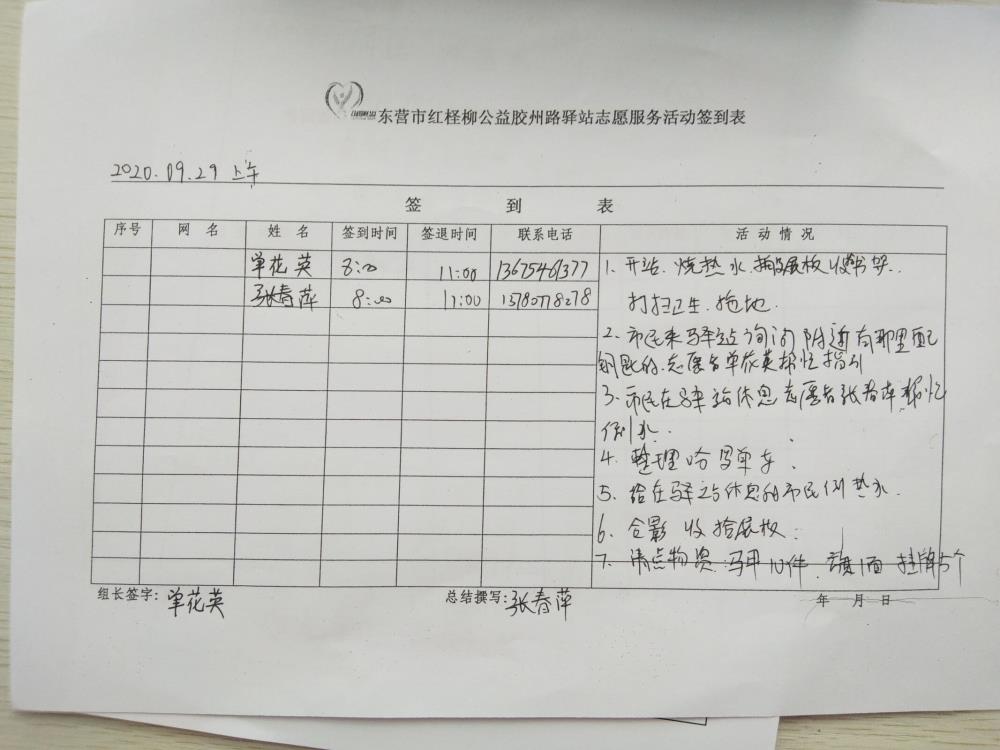 东营市红柽柳公益胶州路驿站志愿服务活动签到表
2020.09.29 上午
签 到 表
序号 网 名 姓 名 签到时间 签退时间 联系电话 活 动 情 况
单花英 8:00 11:00 13675461377 1、开站、烧热水、摆放展板、收整书架.
张春萍 8:00 11:00 13780778278 打扫卫生、拖地.
2、市民来驿站询问附近有那里配
钥匙的.志愿者单花英帮忙指引
3、市民在驿站休息志愿者张春萍帮忙
倒水.
4、整理哈罗单车.
5、给在驿站休息的市民倒热水.
6、合影 收拾展板.
7、清点物资:马甲10件.旗1面 挂牌5个
组长签字:单花英 总结撰写:张春萍 年 月 日